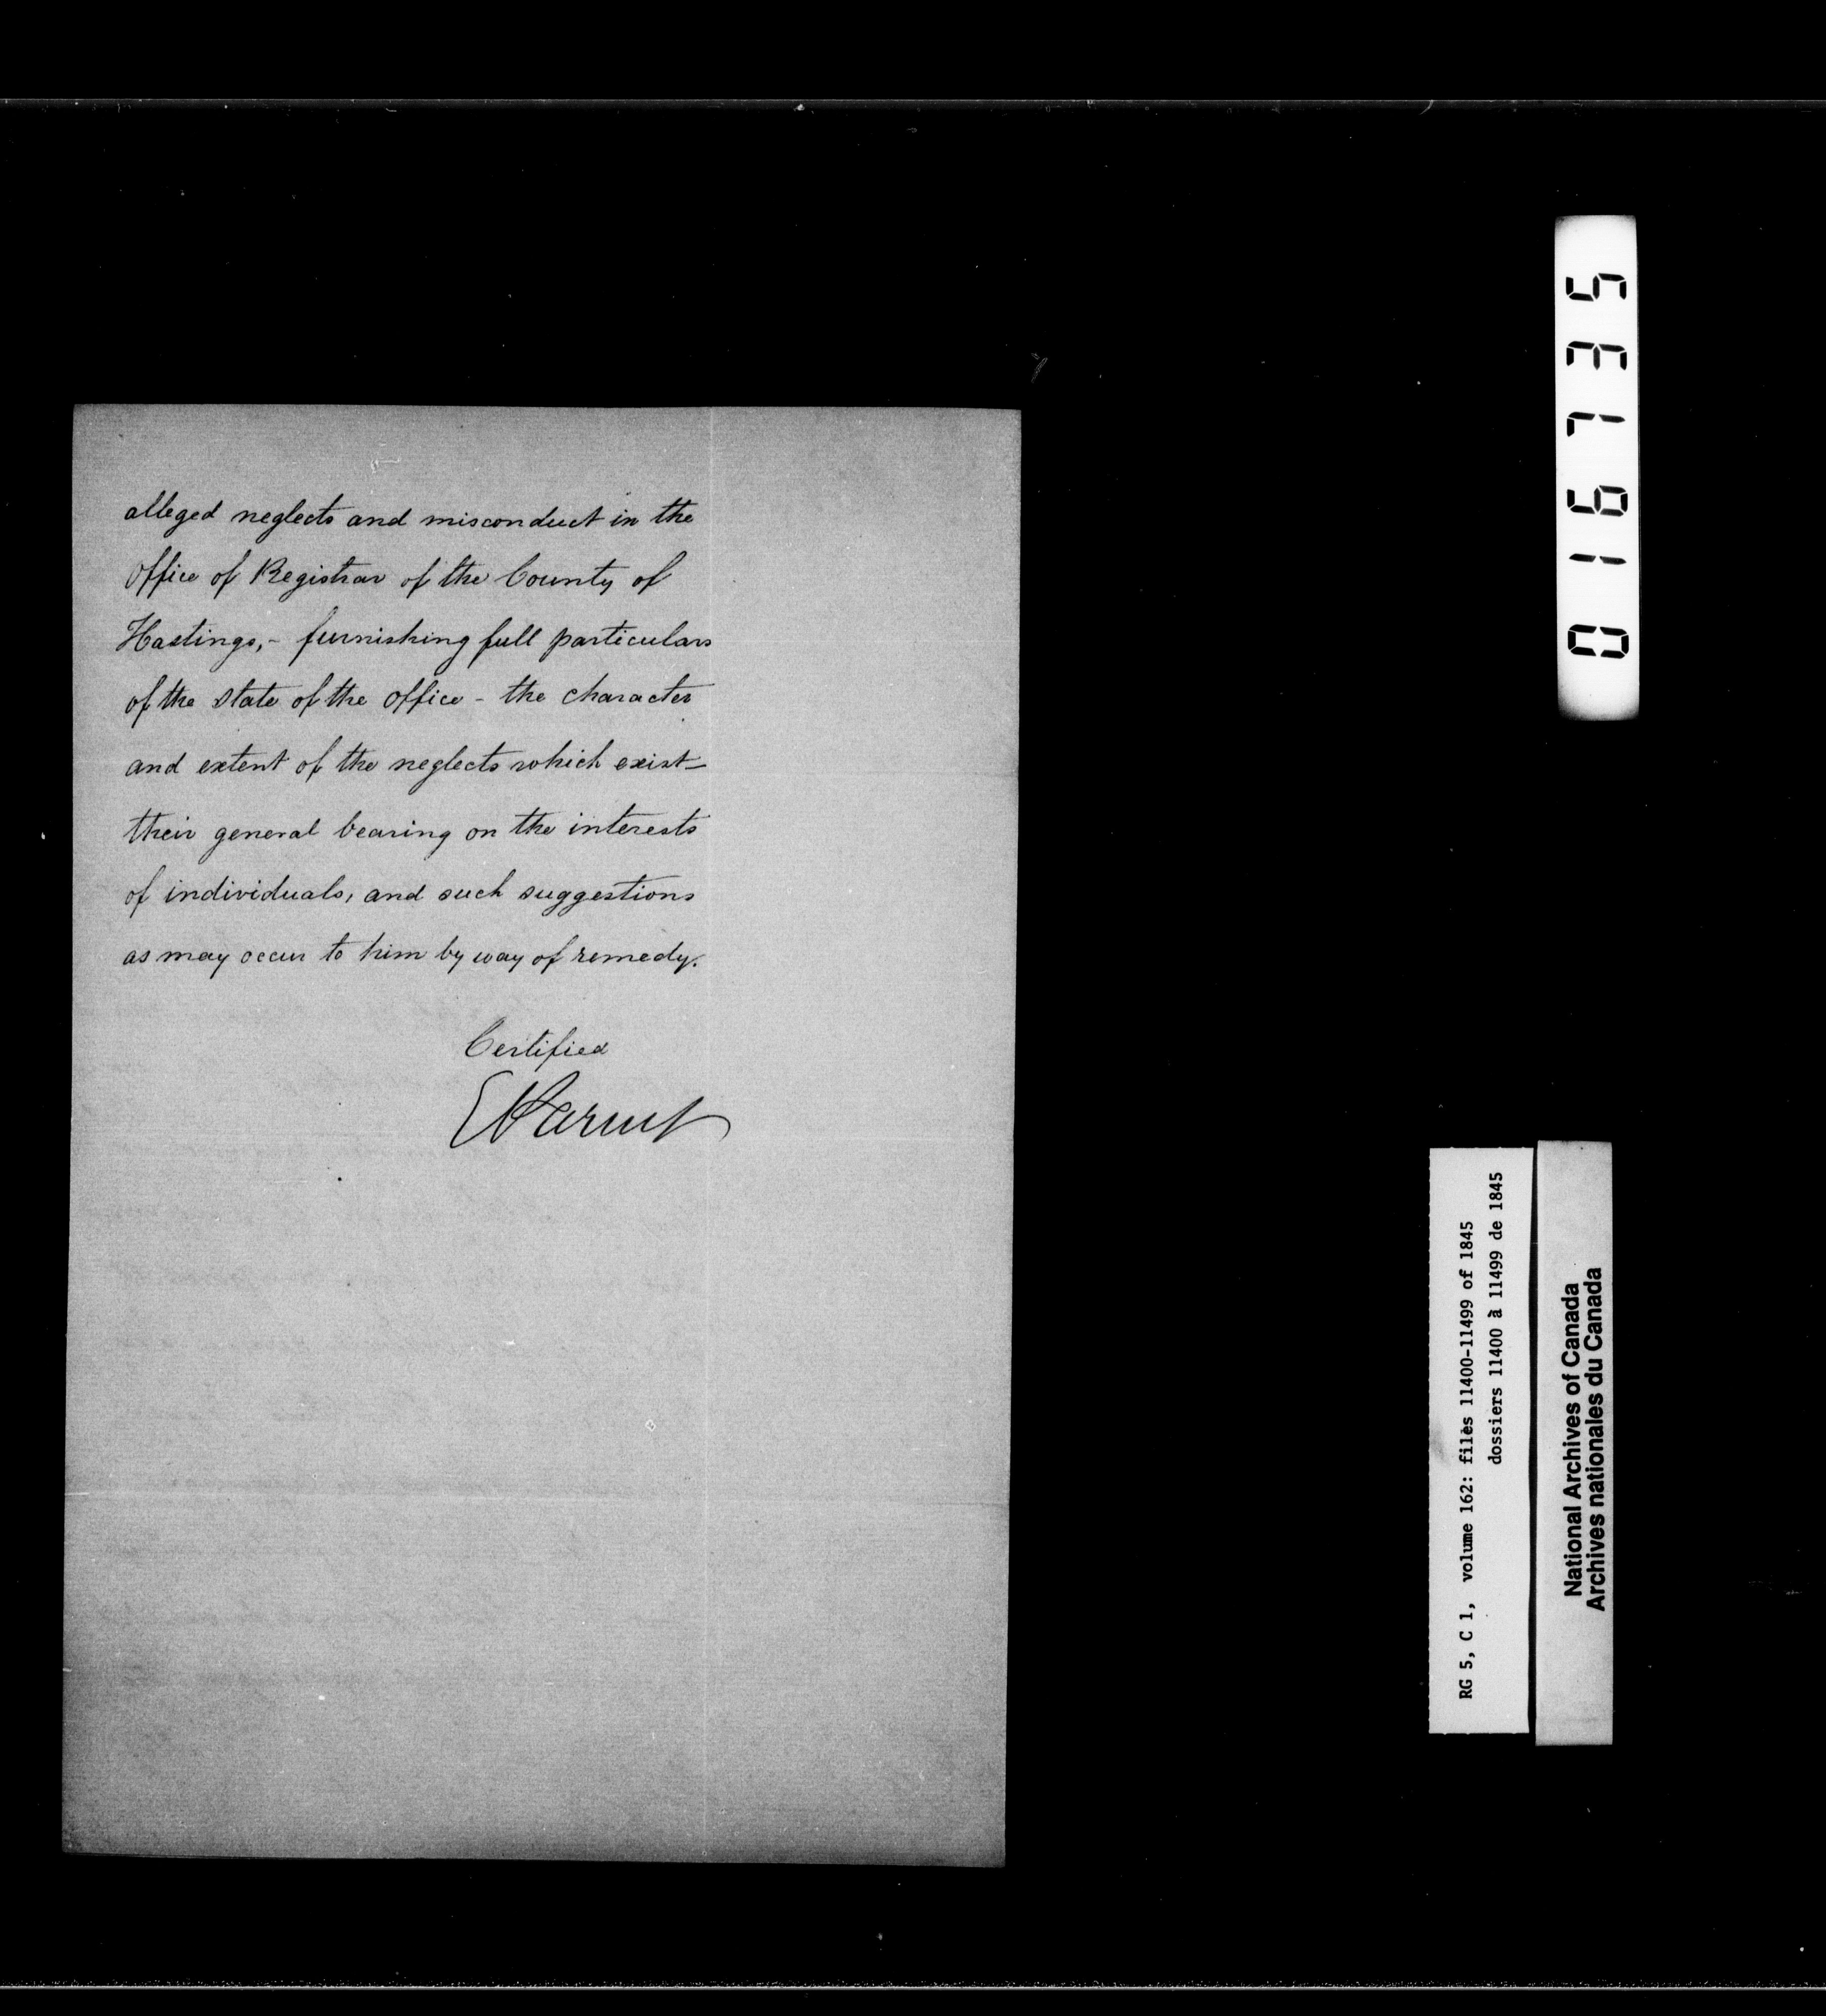 alleged neglects and misconduct in the
Office of Registrar of the County of
Hastings,- furnishing full particulars
of the state of the Office - the character
and extent of the neglects which exist-
their general bearing on the interests
of individuals, and such suggestions
as may occur to him by way of remedy.
Certified
E Parent
016735
RG 5, C 1, volume 162: files 11400-11499 of 1845
dossiers 11400 à 11499 de 1845
National Archives of Canada
Archives nationales du Canada